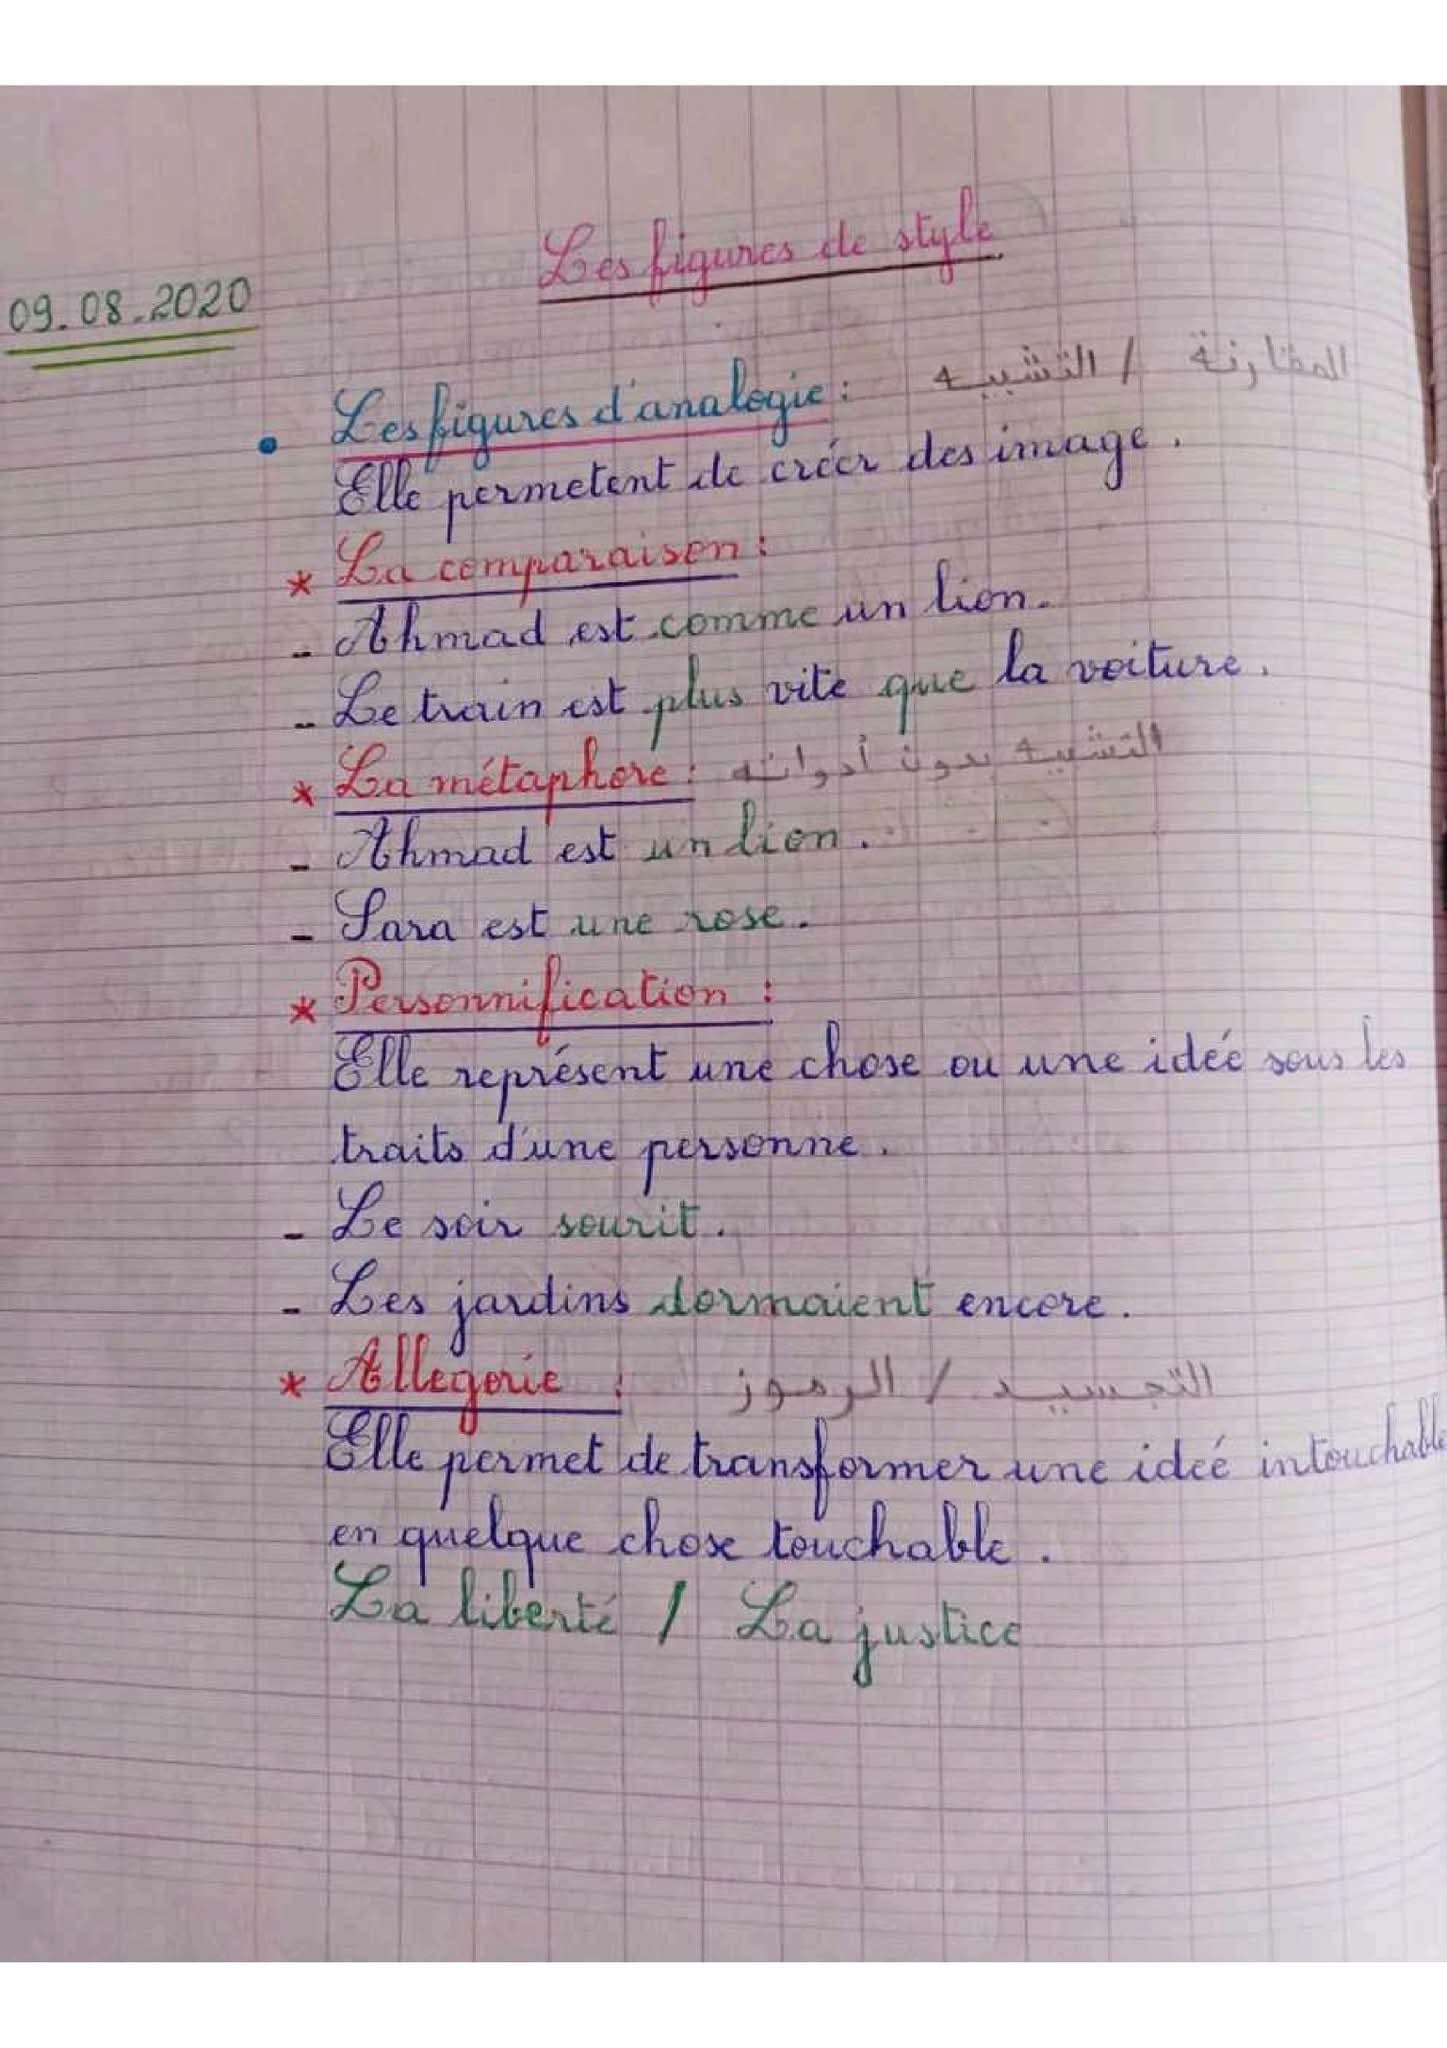 Les figures de style
09.08.2020
• Les figures d'analogie : المقارنة / التشبيه
Elle permetent de créer des image.
* La comparaison :
- Ahmad est comme un lion.
- Le train est plus vite que la voiture.
* La métaphore : التشبيه بدون أدواته
- Ahmad est un lion.
- Sara est une rose.
* Personnification :
Elle représent une chose ou une ideé sous les
traits d'une personne.
- Le soir sourit.
- Les jardins dormaient encore.
* Allegorie : التجسيد / الرموز
Elle permet de transformer une ideé intouchable
en quelque chose touchable.
La liberté / La justice